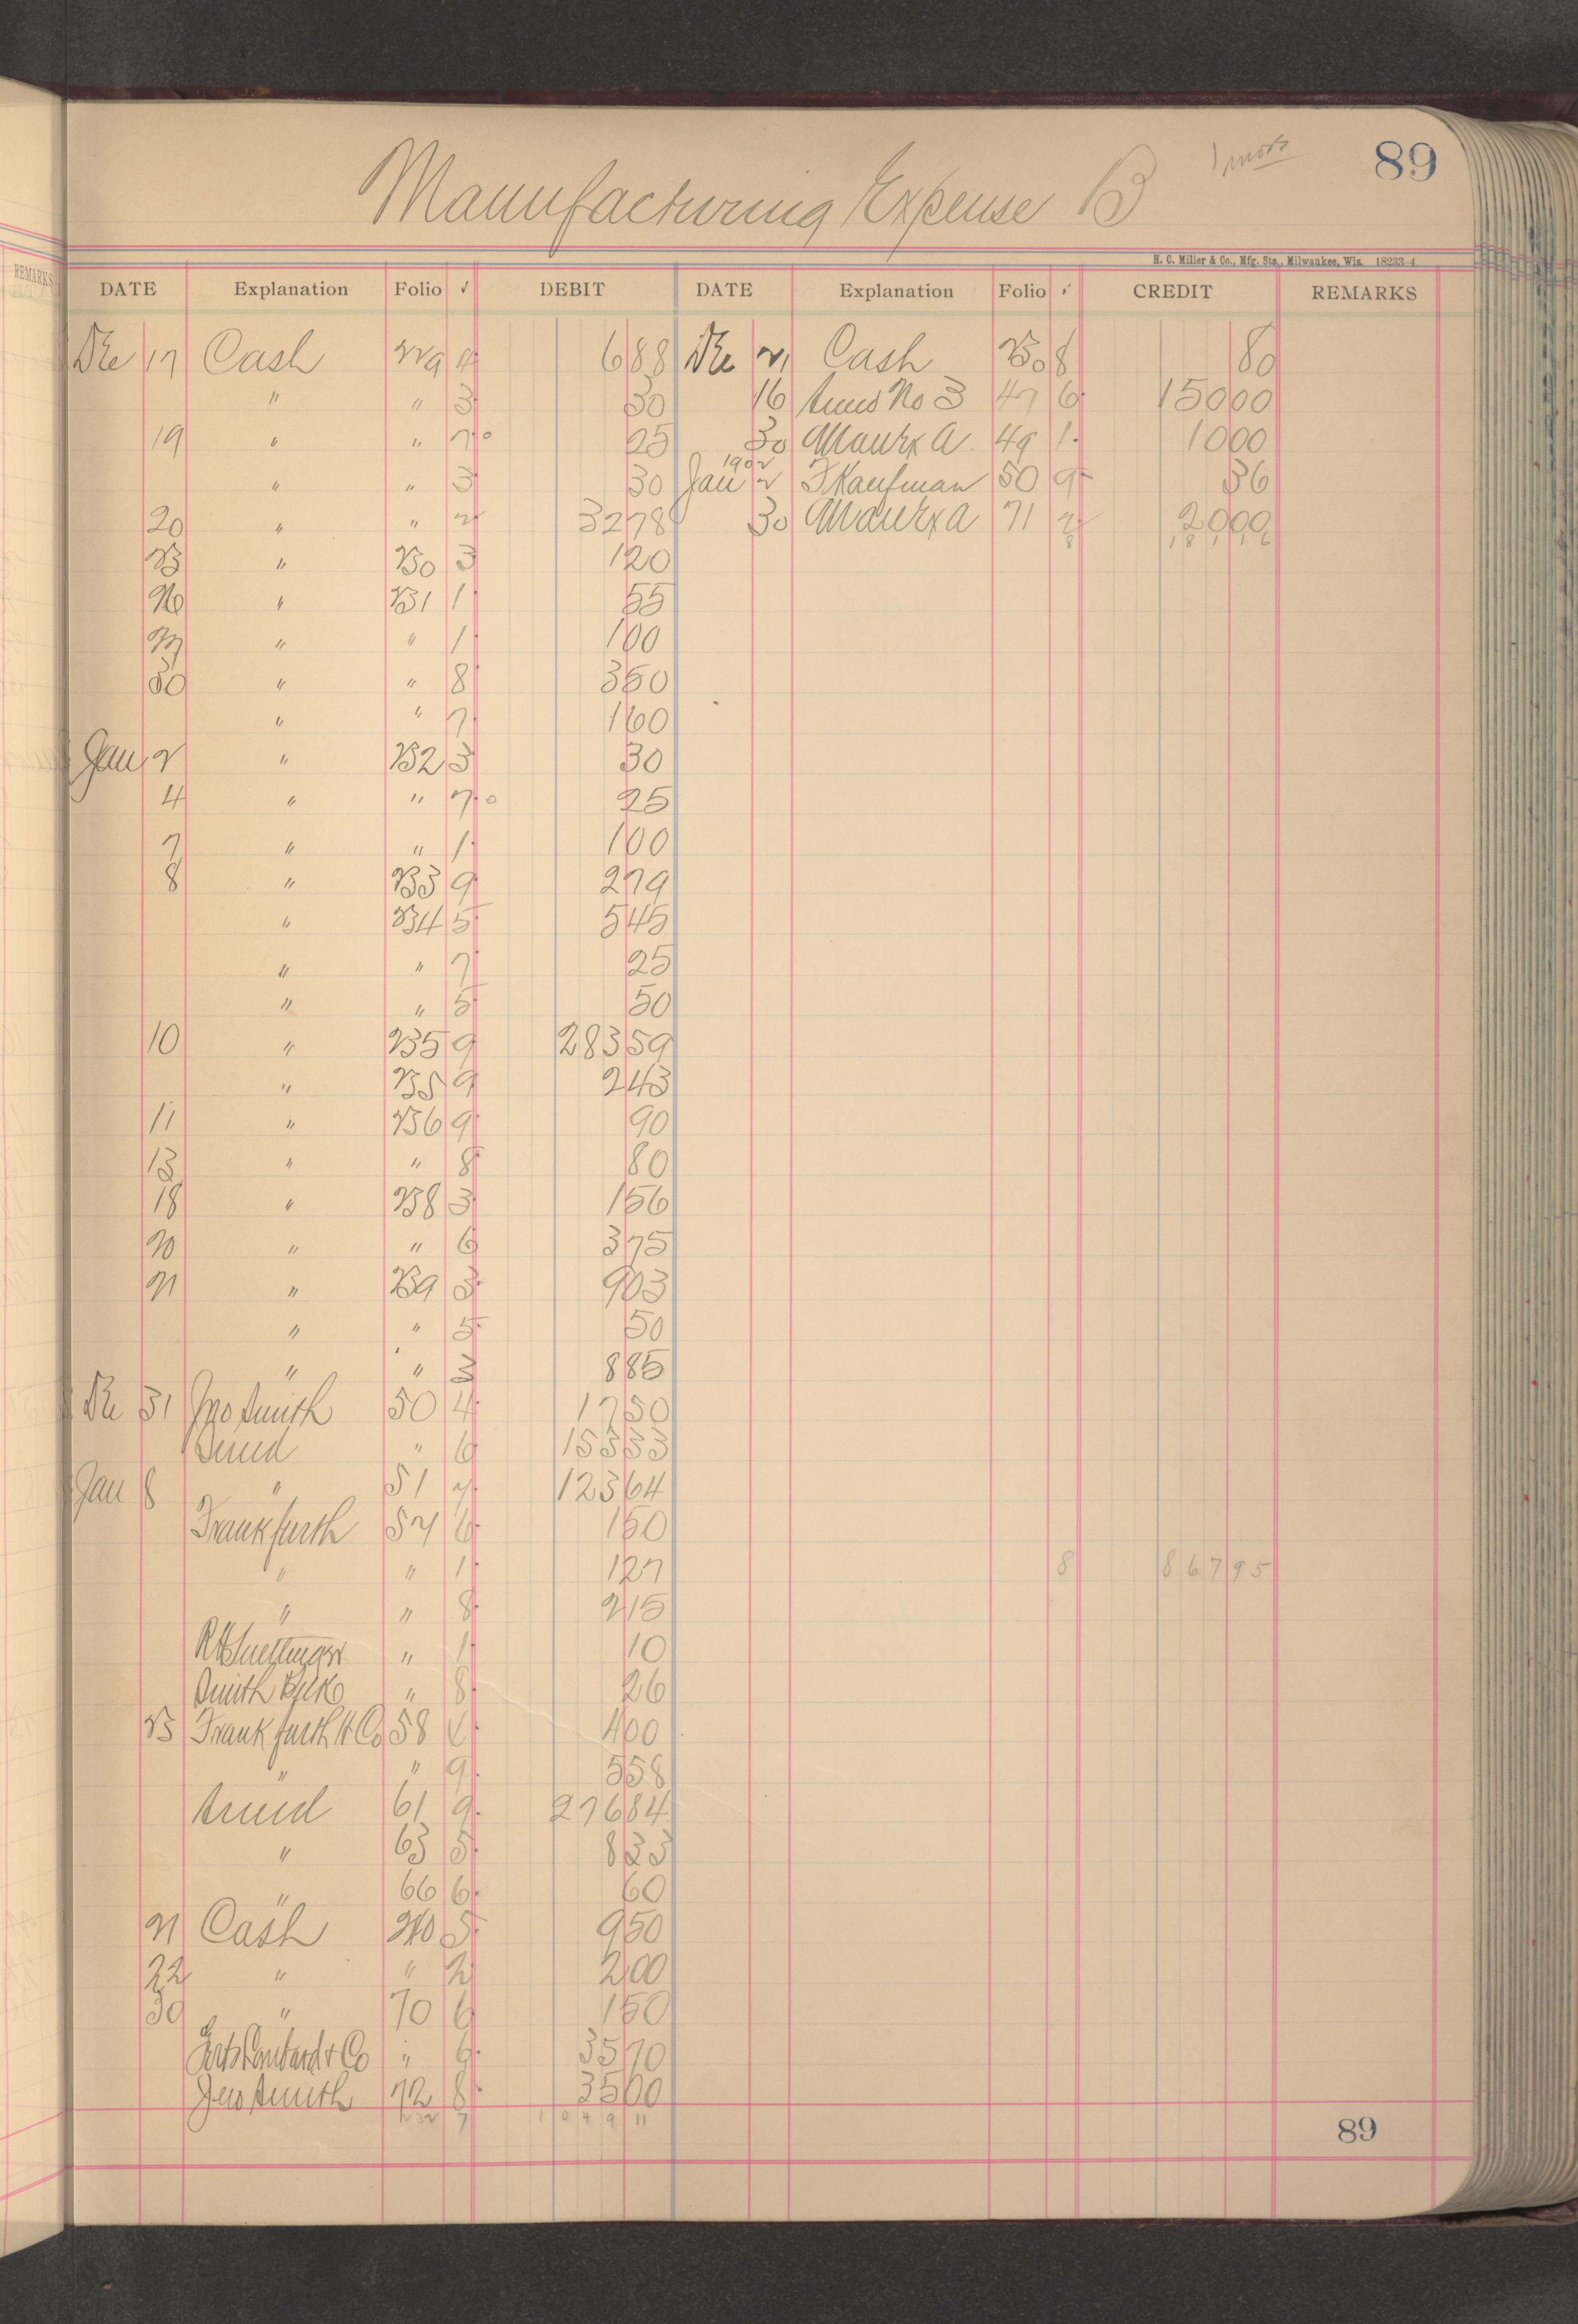 89
1 mos
Manufacturing Expense B
H. C. Miller & Co., Mfg. Sta., Milwaukee, Wis. 18233-4
REMARKS
DATE Explanation Folio ✓ DEBIT DATE Explanation Folio ✓ CREDIT REMARKS
Dec 17 Cash 229 4 6 88 Dec 21 Cash 230 8 80
" " 3 30 16 No 3 47 6 150 00
19 " " 7 25 30 Manfx A 49 1 10 00
1902
" " 3 30 Jan 2 F Kaufman 50 9 36
20 " " 2 32 78 30 Manfx A 71 2 20 00
8 181 16
23 " 230 3 1 20
26 " 231 1 55
27 " " 1 1 00
30 " " 8 3 50
" " 7 1 60
Jan 2 " 232 3 30
4 " " 7 25
7 " " 1 1 00
8 " 233 9 2 79
" 234 5 5 45
" " 7 25
" " 5 50
10 " 235 9 283 59
" 235 9 2 43
11 " 236 9 90
13 " " 8 80
18 " 238 3 1 56
20 " " 6 3 75
21 " 239 3 9 03
" " 5 50
" " 3 8 85
Dec 31 Jno Smith 50 4 17 50
" 6 153 33
Jan 8 " 51 7 123 64
Frankfurth 52 6 1 50
" " 1 1 27 8 867 95
" " 8 2 15
" 1 10
Smith " 8 26
23 Frankfurth H Co 58 4 00
" " 9 5 58
61 9 276 84
" 63 5 8 33
" 66 6 60
21 Cash 240 5 9 50
22 " " 2 2 00
30 " 70 6 1 50
Lombard & Co " 6 35 70
Jno Smith 72 8 35 00
232 7 1049 11
89